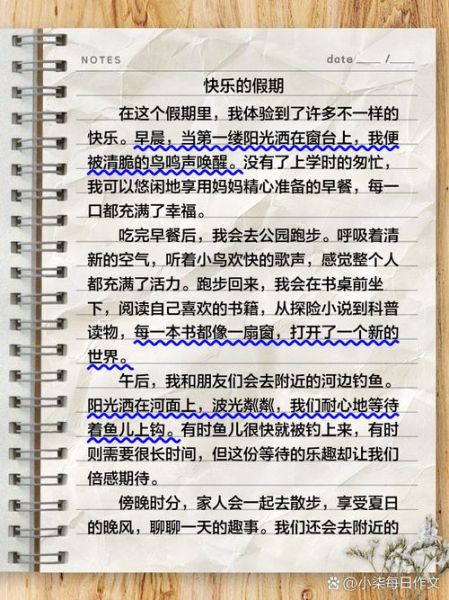 NOTES date ____ /____
快乐的假期
在这个假期里，我体验到了许多不一样的
快乐。早晨，当第一缕阳光洒在窗台上，我便
被清脆的鸟鸣声唤醒。没有了上学时的匆忙，
我可以悠闲地享用妈妈精心准备的早餐，每一
口都充满了幸福。
吃完早餐后，我会去公园跑步。呼吸着清
新的空气，听着小鸟欢快的歌声，感觉整个人
都充满了活力。跑步回来，我会在书桌前坐
下，阅读自己喜欢的书籍，从探险小说到科普
读物，每一本书都像一扇窗，打开了一个新的
世界。
午后，我和朋友们会去附近的河边钓鱼。
阳光洒在河面上，波光粼粼，我们耐心地等待
着鱼儿上钩。有时鱼儿很快就被钓上来，有时
则需要很长时间，但这份等待的乐趣却让我们
倍感期待。
傍晚时分，家人会一起去散步，享受夏日
的晚风，聊聊一天的趣事。我们还会去附近的
小柒每日作文